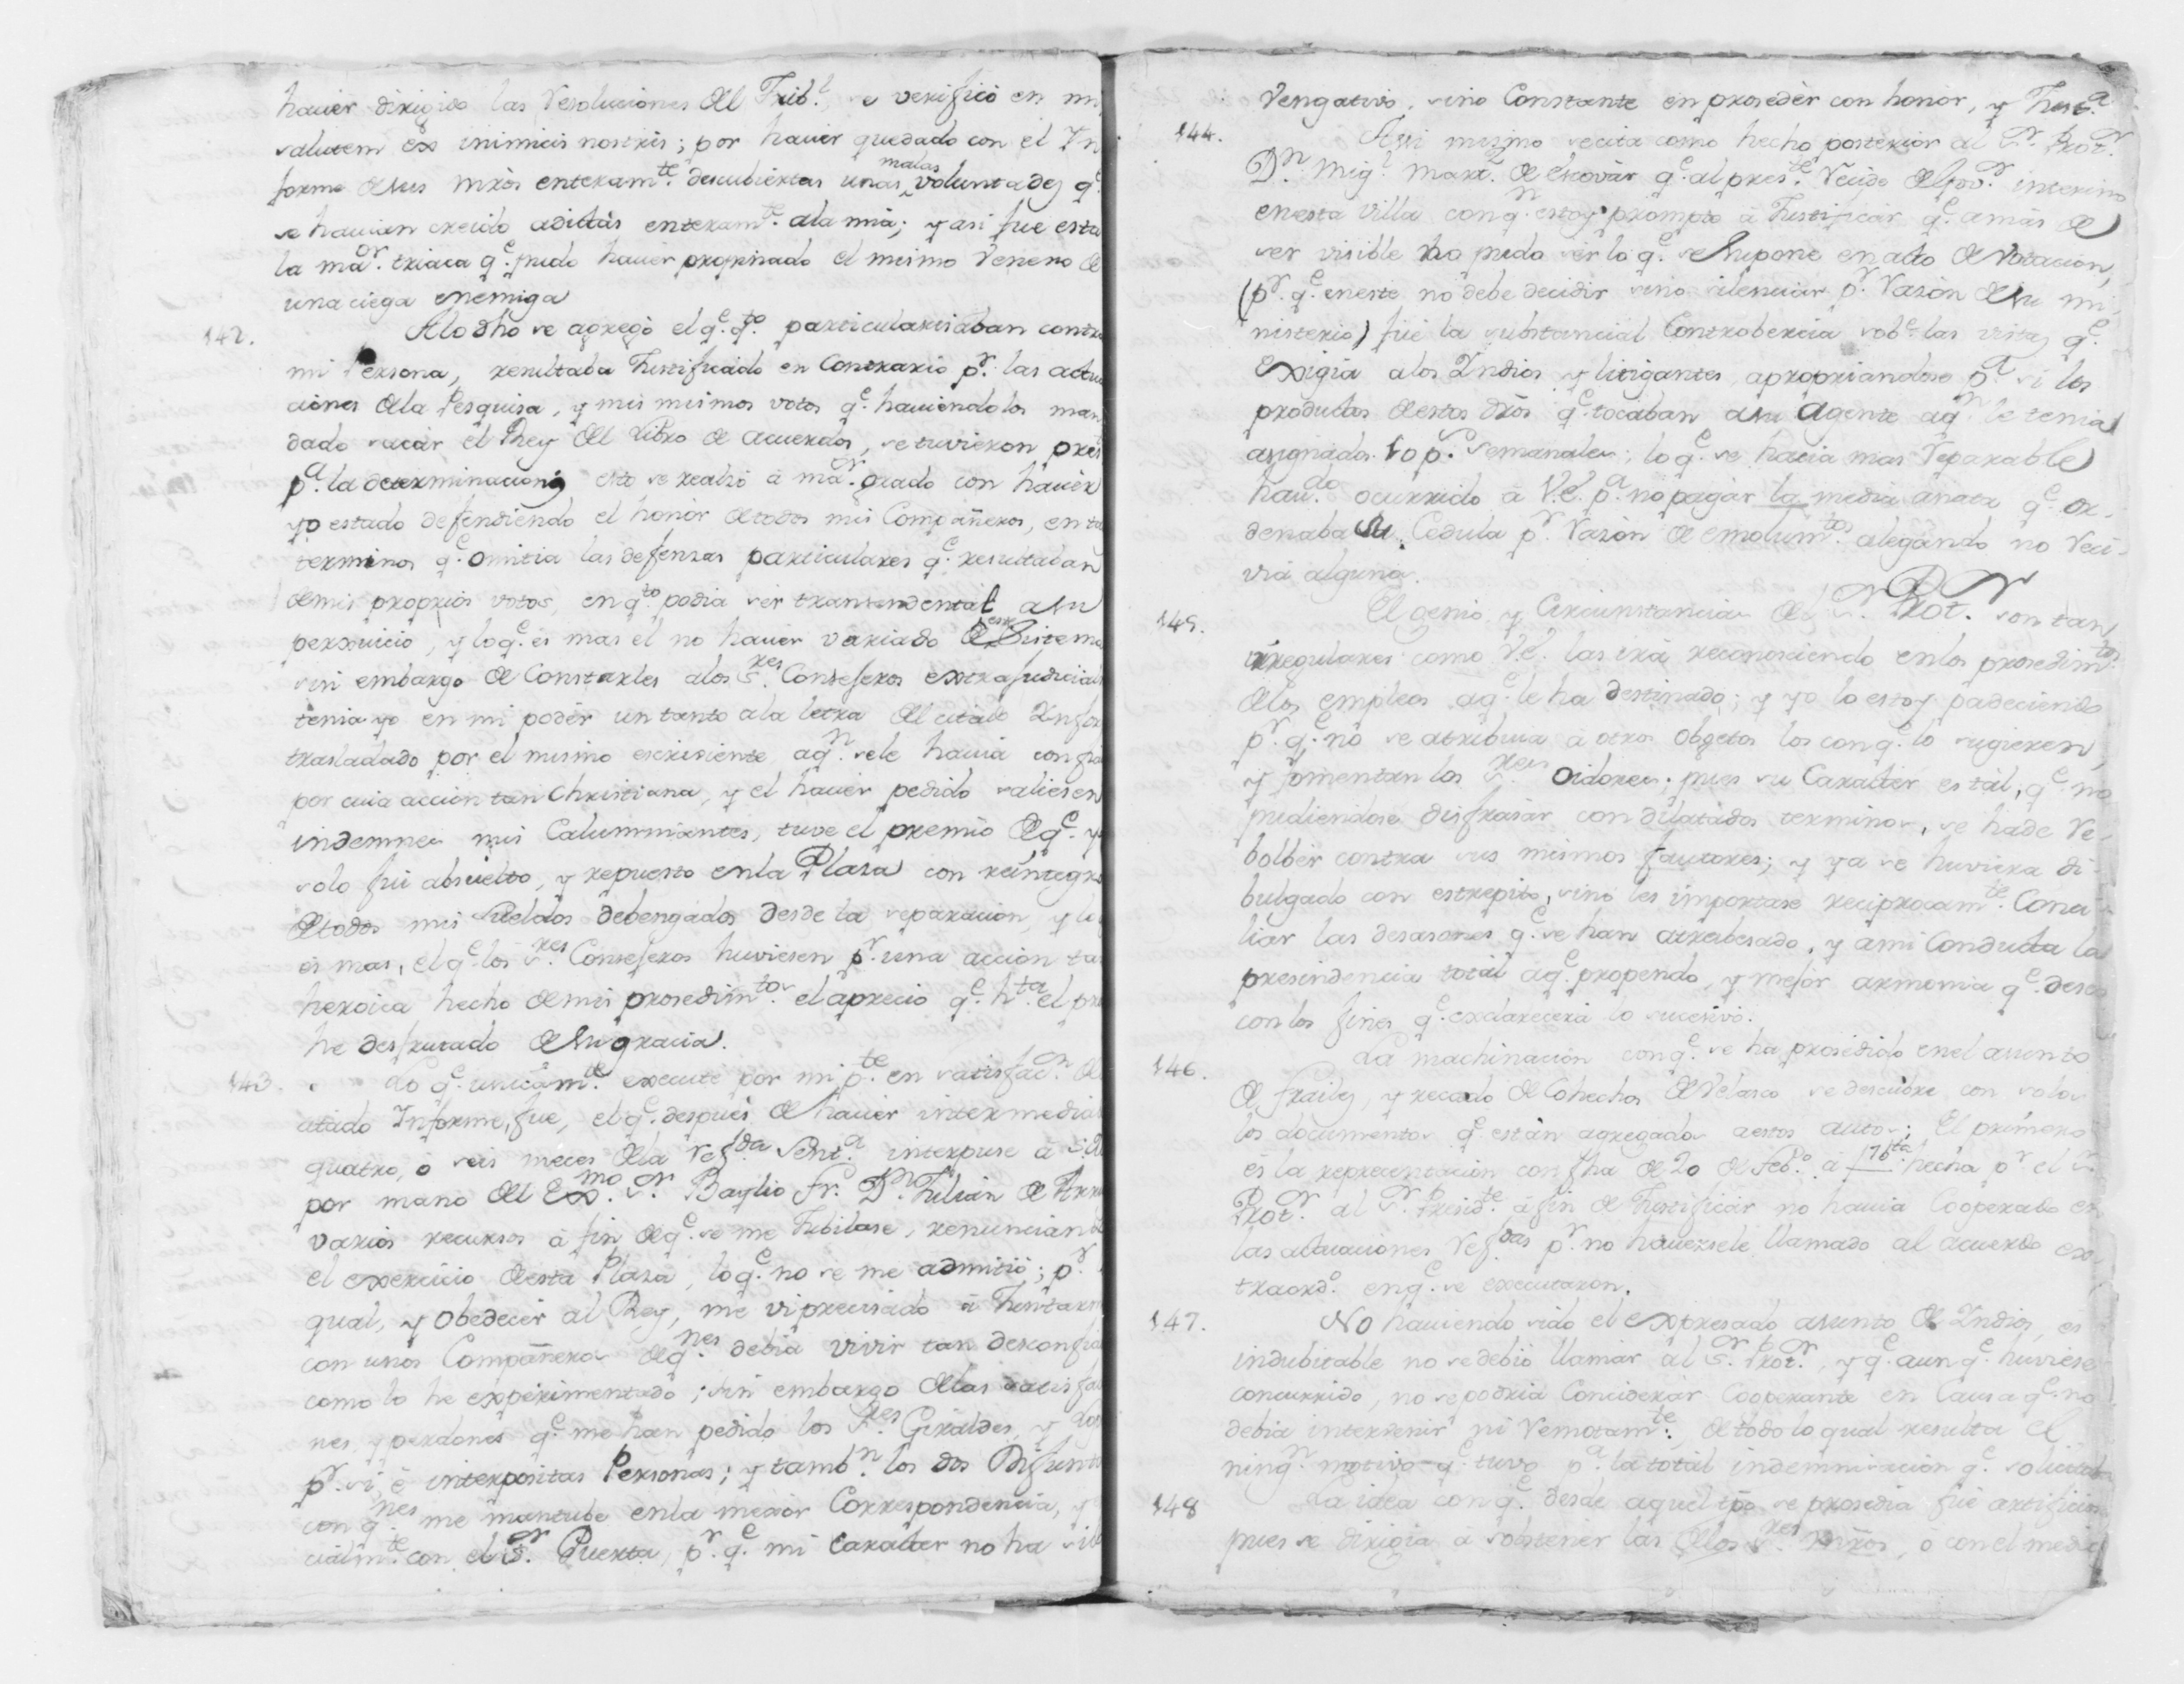 haver dirigido las Resoluciones del Trib.l se verificó en mi
salutem ex inimicis nostris; por haver quedado con el Yn
forme de sus mrôs enteram.te descubiertas unas malas voluntades q.e
se havian creido adictas enteram.te ala mia; y asi fue esta
la ma.or triaca q.e pudo haver propinado el mismo Veneno de
una ciega enemiga
142. Alo dho se agregò el q.e q.to particularisaban contra
mi Persona, resultaba Justificado en Contrario p.r las actua
ciones dela Pesquisa, y mis mismos votos q.e haviendolos man
dado sacar el Rey del Libro de acuerdos, se tuvieron pres
p.a la determinacion; esto se realsó á ma.or grado con haver
yo estado defendiendo el honòr de todos mis Compañeros, en ta
terminos q.e omitia las defensas particulares q.e resultaban
de mis proprios votos, en q.to podia ser transendental asu
perxuicio, y loq.e es mas el no haver variado de este Sistema
sin embargo de Constarles alos S.res Consejeros extrajudicial
tenia yo en mi podèr un tanto ala letra del citado Ynfor
trasladado por el mismo escriviente aq.n sele havia confia
por cuia accion tan Christiana, y el haver pedido saliesen
indemnes mis Calumniantes, tuve el premio de q.e y
solo fui absuelto, y repuesto enla Plasa con reintegro
de todos mis sueldos debengados desde la separacion, y lo
es mas, el q.e los S.res Consejeros huviesen p.r una accion ta
heroica hecho de mis prosedim.tos el aprecio q.e h.ta el pre
he desfrutado de su gracia.
143. Lo q.e unicam.te execute por mi p.te en satisfac.n de
citado Informe, fue, el q.e despues de haver intermedia
quatro, o seis meces dela ref.da Sent.a interpuse à S.M.
por mano del Ex.mo S.r Baylio Fr. D.n Julian de Arri
varios recursos à fin de q.e se me Jubilase, renuncian
el exercicio de esta Plasa, loq.e no se me admitiò; p.r
qual, y obedecer al Rey, me vi precisado à Juntarm
con unos Compañeros de q.nes debia vivir tan desconfia
como lo he experimentado; sin embargo de las satisfa
nes, y perdones q.e me han pedido los S.res Giraldes, y
p.r si, è interpositas Personas; y tamb.n los dos Difunt
con q.nes me mantube enla mejor Correspondencia, y
cialm.te con el S.r Puerta, p.r q.e mi Caracter no ha sid
Vengativo, sino Constante en prosedèr con honor, y Just.a
144. Asi mismo se cita como hecho posterior al S.r Prot.r
D.n Mig.l Mart.z de Escovàr q.e al pres.te reside de Gov.r interino
en esta Villa con q.n estoy prompto à Justificàr q.e a màs de
ser visible no pudo sèr lo q.e se supone en acto de votacion,
(p.r q.e en este no debe decidir sino silenciar p.r Rasòn de su mi-
nisterio) fuè la substancial Controbercia sob.e las vistas q.e
Exigia alos Yndios, y litigantes, apropriandose p.a si los
productos de estos drôs q.e tocaban a su Agente aq.n le tenia
asignados 10 p.s semanales; lo q.e se hacia mas reparable
hav.do ocurrido à V.E. p.a no pagàr la media anata q.e or-
denaba su Cedula p.r rasòn de emolum.tos alegando no reci-
via alguno.
145. El genio, y Circunstancias del S.r Prot.r son tan
irregulares como V.E. las irà reconosciendo enlos prosedim.tos
delos empleos aq.e le ha destinado; y yo lo estoy padeciendo
p.r q.e no se atribuia à otros Obgetos los con q.e lo sugieren,
y fomentan los S.res Oidores; pues su Caracter es tàl, q.e no
pudiendose disfrasàr con dilatados terminos, se hade re-
bolbèr contra sus mismos fautores; y ya se huviera di-
bulgado con estrepito, sino les importase reciprocam.te Conci-
liar las desasones q.e se han atrabesado, y ami Conducta la
presindencia totàl aq.e propendo, y mejòr armonia q.e deseo
con los fines q.e exclarecerà lo sucesivo.
146. La machinacion con q.e se ha prosedido enel asunto
de frailes, y recado de Cohechos de Velasco se descubre con solos
los documentos q.e estàn agregados aestos autos; El primero
ès la representacion con fha de 20 de Feb.o à f 176.ta hecha p.r el S.r
Prot.r al S.r Presid.te à fin de Justificàr no havia Cooperado en
las actuaciones ref.das p.r no haversele llamado al acuerdo ex-
traord.o en q.e se executaron.
147. No haviendo sido el expresado asunto de Yndios, es
indubitable no se debiò llamàr al S.r Prot.r, y q.e aunq.e huviese
concurrido, no se podria Considerar Cooperante en Causa q.e no
debia intervenir ni remotam.te, de todo lo qual resulta el
ning.n motivo q.e tuvo p.a la total indemnisacion q.e solicitaba
148 La idea con q.e desde aquel tpo se prosedia fuè artificiosa
pues se dirigia à sobstenèr las delos S.res Mrôs, ò con el medio